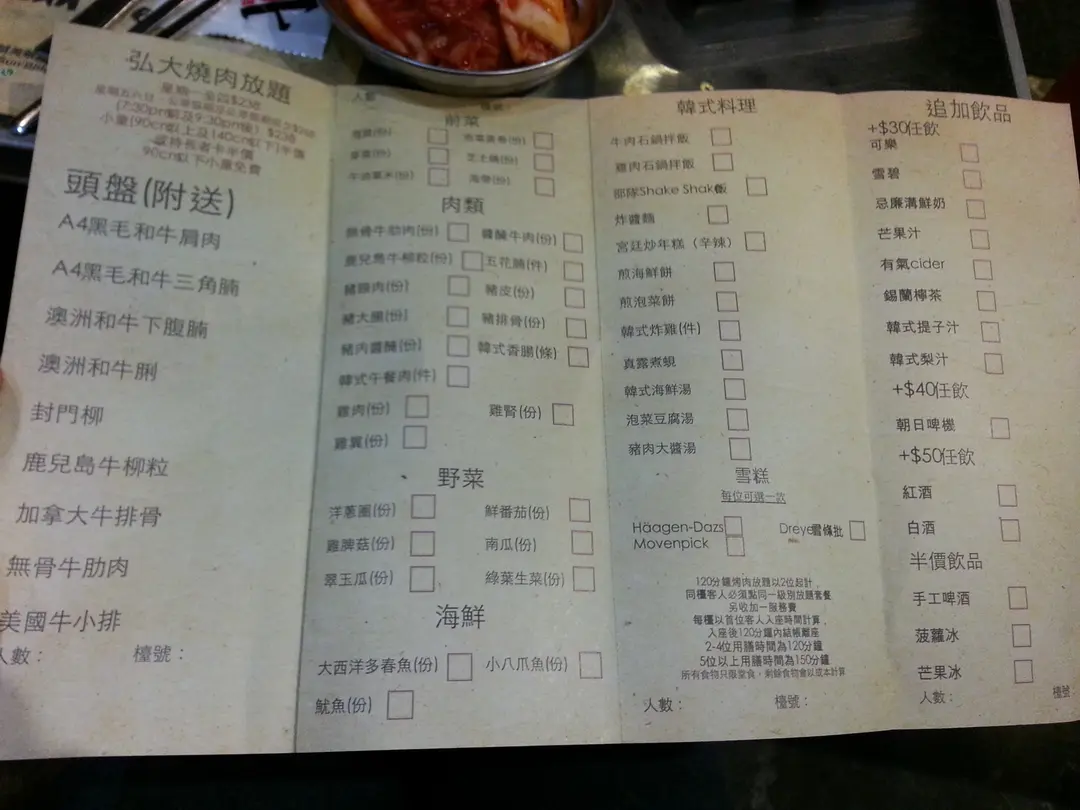 弘大燒肉放題
小童(90cm以上及140cm以下)半價
90cm以下小童免費
頭盤(附送)
A4黑毛和牛肩肉
A4黑毛和牛三角腩
澳洲和牛下腹腩
澳洲和牛脷
封門柳
鹿兒島牛柳粒
加拿大牛排骨
無骨牛肋肉
美國牛小排
人數：
檯號：
人數：
檯號：
前菜
海帶(份)
肉類
無骨牛肋肉(份)
鹿兒島牛柳粒(份)
五花腩(件)
豬頸肉(份)
豬皮(份)
豬大腸(份)
豬排骨(份)
韓式香腸(條)
韓式午餐肉(件)
雞肉(份)
雞腎(份)
雞翼(份)
野菜
洋蔥圈(份)
鮮番茄(份)
雞脾菇(份)
南瓜(份)
翠玉瓜(份)
綠葉生菜(份)
海鮮
大西洋多春魚(份)
小八爪魚(份)
魷魚(份)
韓式料理
牛肉石鍋拌飯
雞肉石鍋拌飯
部隊Shake Shake飯
炸醬麵
宮廷炒年糕（辛辣）
煎海鮮餅
煎泡菜餅
韓式炸雞(件)
真露煮蜆
韓式海鮮湯
泡菜豆腐湯
豬肉大醬湯
雪糕
每位可選一款
Häagen-Dazs
Dreyer雪條批
Movenpick
120分鐘烤肉放題以2位起計，
同檯客人必須點同一級別放題套餐
另收加一服務費
每檯以首位客人入座時間計算，
入座後120分鐘內結帳離座
2-4位用膳時間為120分鐘
5位以上用膳時間為150分鐘
所有食物只限堂食，剩餘食物會以成本計算
人數：
檯號：
追加飲品
+$30任飲
可樂
雪碧
忌廉溝鮮奶
芒果汁
有氣cider
錫蘭檸茶
韓式提子汁
韓式梨汁
+$40任飲
朝日啤機
+$50任飲
紅酒
白酒
半價飲品
手工啤酒
菠蘿冰
芒果冰
人數：
檯號：